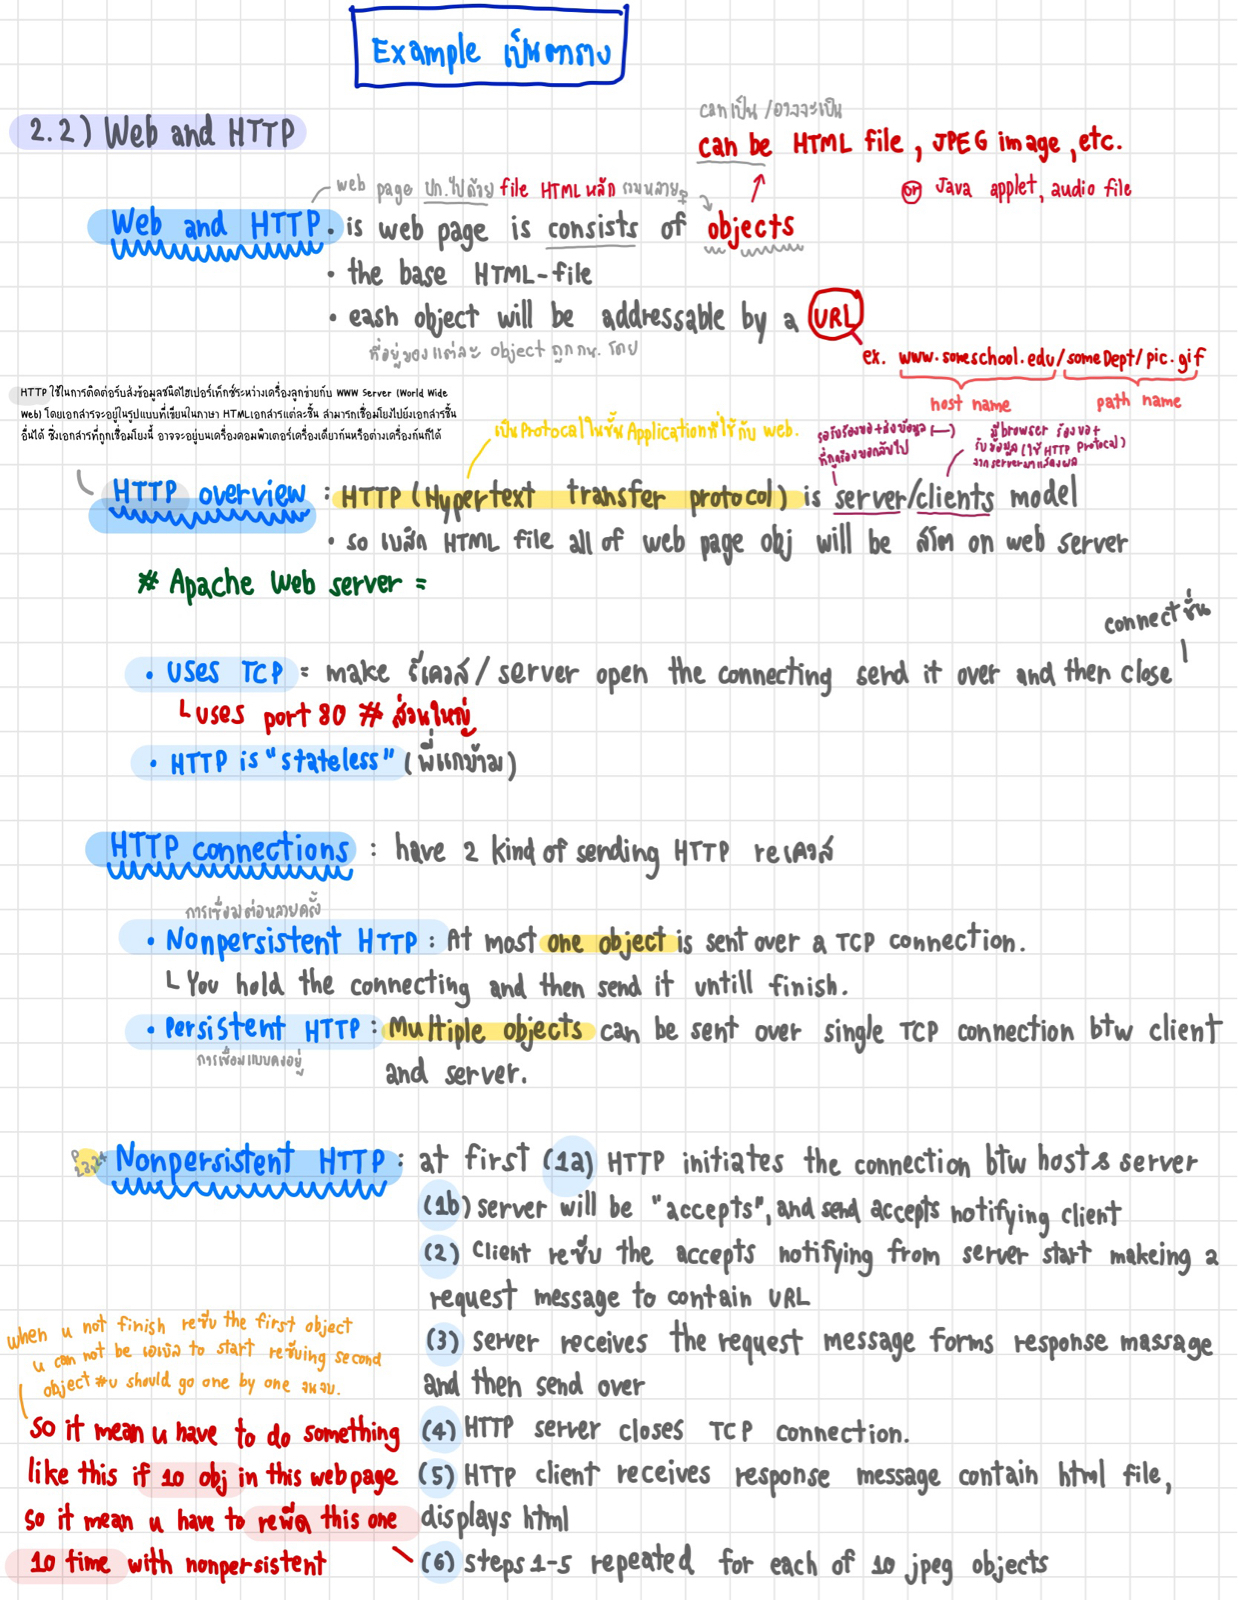 Example เป็นตาราง
2.2) Web and HTTP
canเป็น /อาจจะเป็น
can be HTML file, JPEG image, etc.
or Java applet, audio file
web page ปก.ไปด้วย file HTML หลัก รวมหลายๆ
Web and HTTP • is web page is consists of objects
• the base HTML-file
• eash object will be addressable by a URL
ที่อยู่ของแต่ละ object ถูก กน. โดย
ex. www.someschool.edu/someDept/pic.gif
host name path name
HTTP ใช้ในการติดต่อรับส่งข้อมูลชนิดไฮเปอร์เท็กซ์ระหว่างเครื่องลูกข่ายกับ WWW Server (World Wide
Web) โดยเอกสารจะอยู่ในรูปแบบที่เขียนในภาษา HTMLเอกสารแต่ละชิ้น สามารถเชื่อมโยงไปยังเอกสารชิ้น
อื่นได้ ซึ่งเอกสารที่ถูกเชื่อมโยงนี้ อาจจะอยู่บนเครื่องคอมพิวเตอร์เครื่องเดียวกันหรือต่างเครื่องกันก็ได้
เป็นProtocalในชั้น Applicationที่ใช้กับ web.
รอรับร้องขอ+ส่งข้อมูล
ที่ถูกร้องขอกลับไป
มีbrowser ร้องขอ+
รับข้อมูล(ใช้ HTTP Protocal)
จากserverมาแสดงผล
HTTP overview : HTTP (Hypertext transfer protocol) is server/clients model
• so เบสิก HTML file all of web page obj will be สโต on web server
# Apache Web server =
connect ชั่น
• uses TCP = make รีเควส/server open the connecting send it over and then close
uses port 80 # ส่วนใหญ่
• HTTP is "stateless" (พี่แกข้าม)
HTTP connections : have 2 kind of sending HTTP reเควส
การเชื่อมต่อหลายครั้ง
• Nonpersistent HTTP : At most one object is sent over a TCP connection.
You hold the connecting and then send it untill finish.
• Persistent HTTP : Multiple objects can be sent over single TCP connection btw client
การเชื่อมแบบคงอยู่
and server.
Nonpersistent HTTP : at first (1a) HTTP initiates the connection btw host & server
(1b) server will be "accepts", and send accepts notifying client
(2) Client reซีบ the accepts notifying from server start makeing a
request message to contain URL
(3) server receives the request message forms response massage
and then send over
(4) HTTP server closes TCP connection.
(5) HTTP client receives response message contain html file,
displays html
(6) steps 1-5 repeated for each of 10 jpeg objects
when u not finish reซีบ the first object
u can not be เอเบิล to start reซีบing second
object #u should go one by one จนจบ.
so it mean u have to do something
like this if 10 obj in this web page
so it mean u have to reพีด this one
10 time with nonpersistent